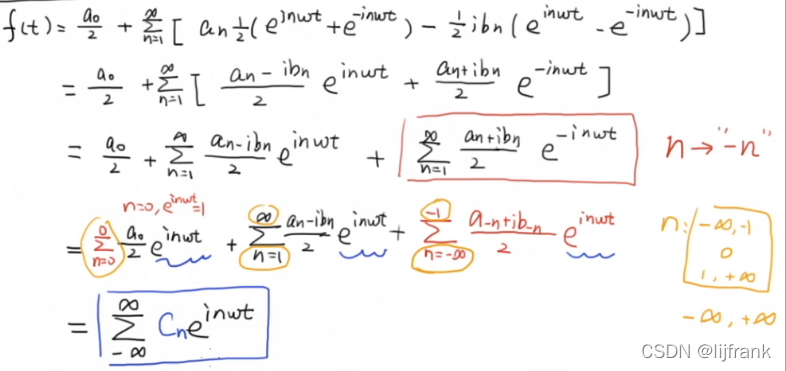 f(t) = a₀/2 + Σ_{n=1}^{∞} [ aₙ 1/2 (e^{inwt} + e^{-inwt}) - 1/2 ibₙ (e^{inwt} - e^{-inwt}) ]
= a₀/2 + Σ_{n=1}^{∞} [ (aₙ - ibₙ)/2 e^{inwt} + (aₙ + ibₙ)/2 e^{-inwt} ]
= a₀/2 + Σ_{n=1}^{∞} (aₙ - ibₙ)/2 e^{inwt} + Σ_{n=1}^{∞} (aₙ + ibₙ)/2 e^{-inwt} n → "-n"
n=0, e^{inwt}=1
= Σ_{n=0}^{0} a₀/2 e^{inwt} + Σ_{n=1}^{∞} (aₙ - ibₙ)/2 e^{inwt} + Σ_{n=-∞}^{-1} (a₋ₙ + ib₋ₙ)/2 e^{inwt}
n: -∞, -1
0
1, +∞
-∞, +∞
= Σ_{-∞}^{∞} Cₙ e^{inwt}
CSDN @lijfrank